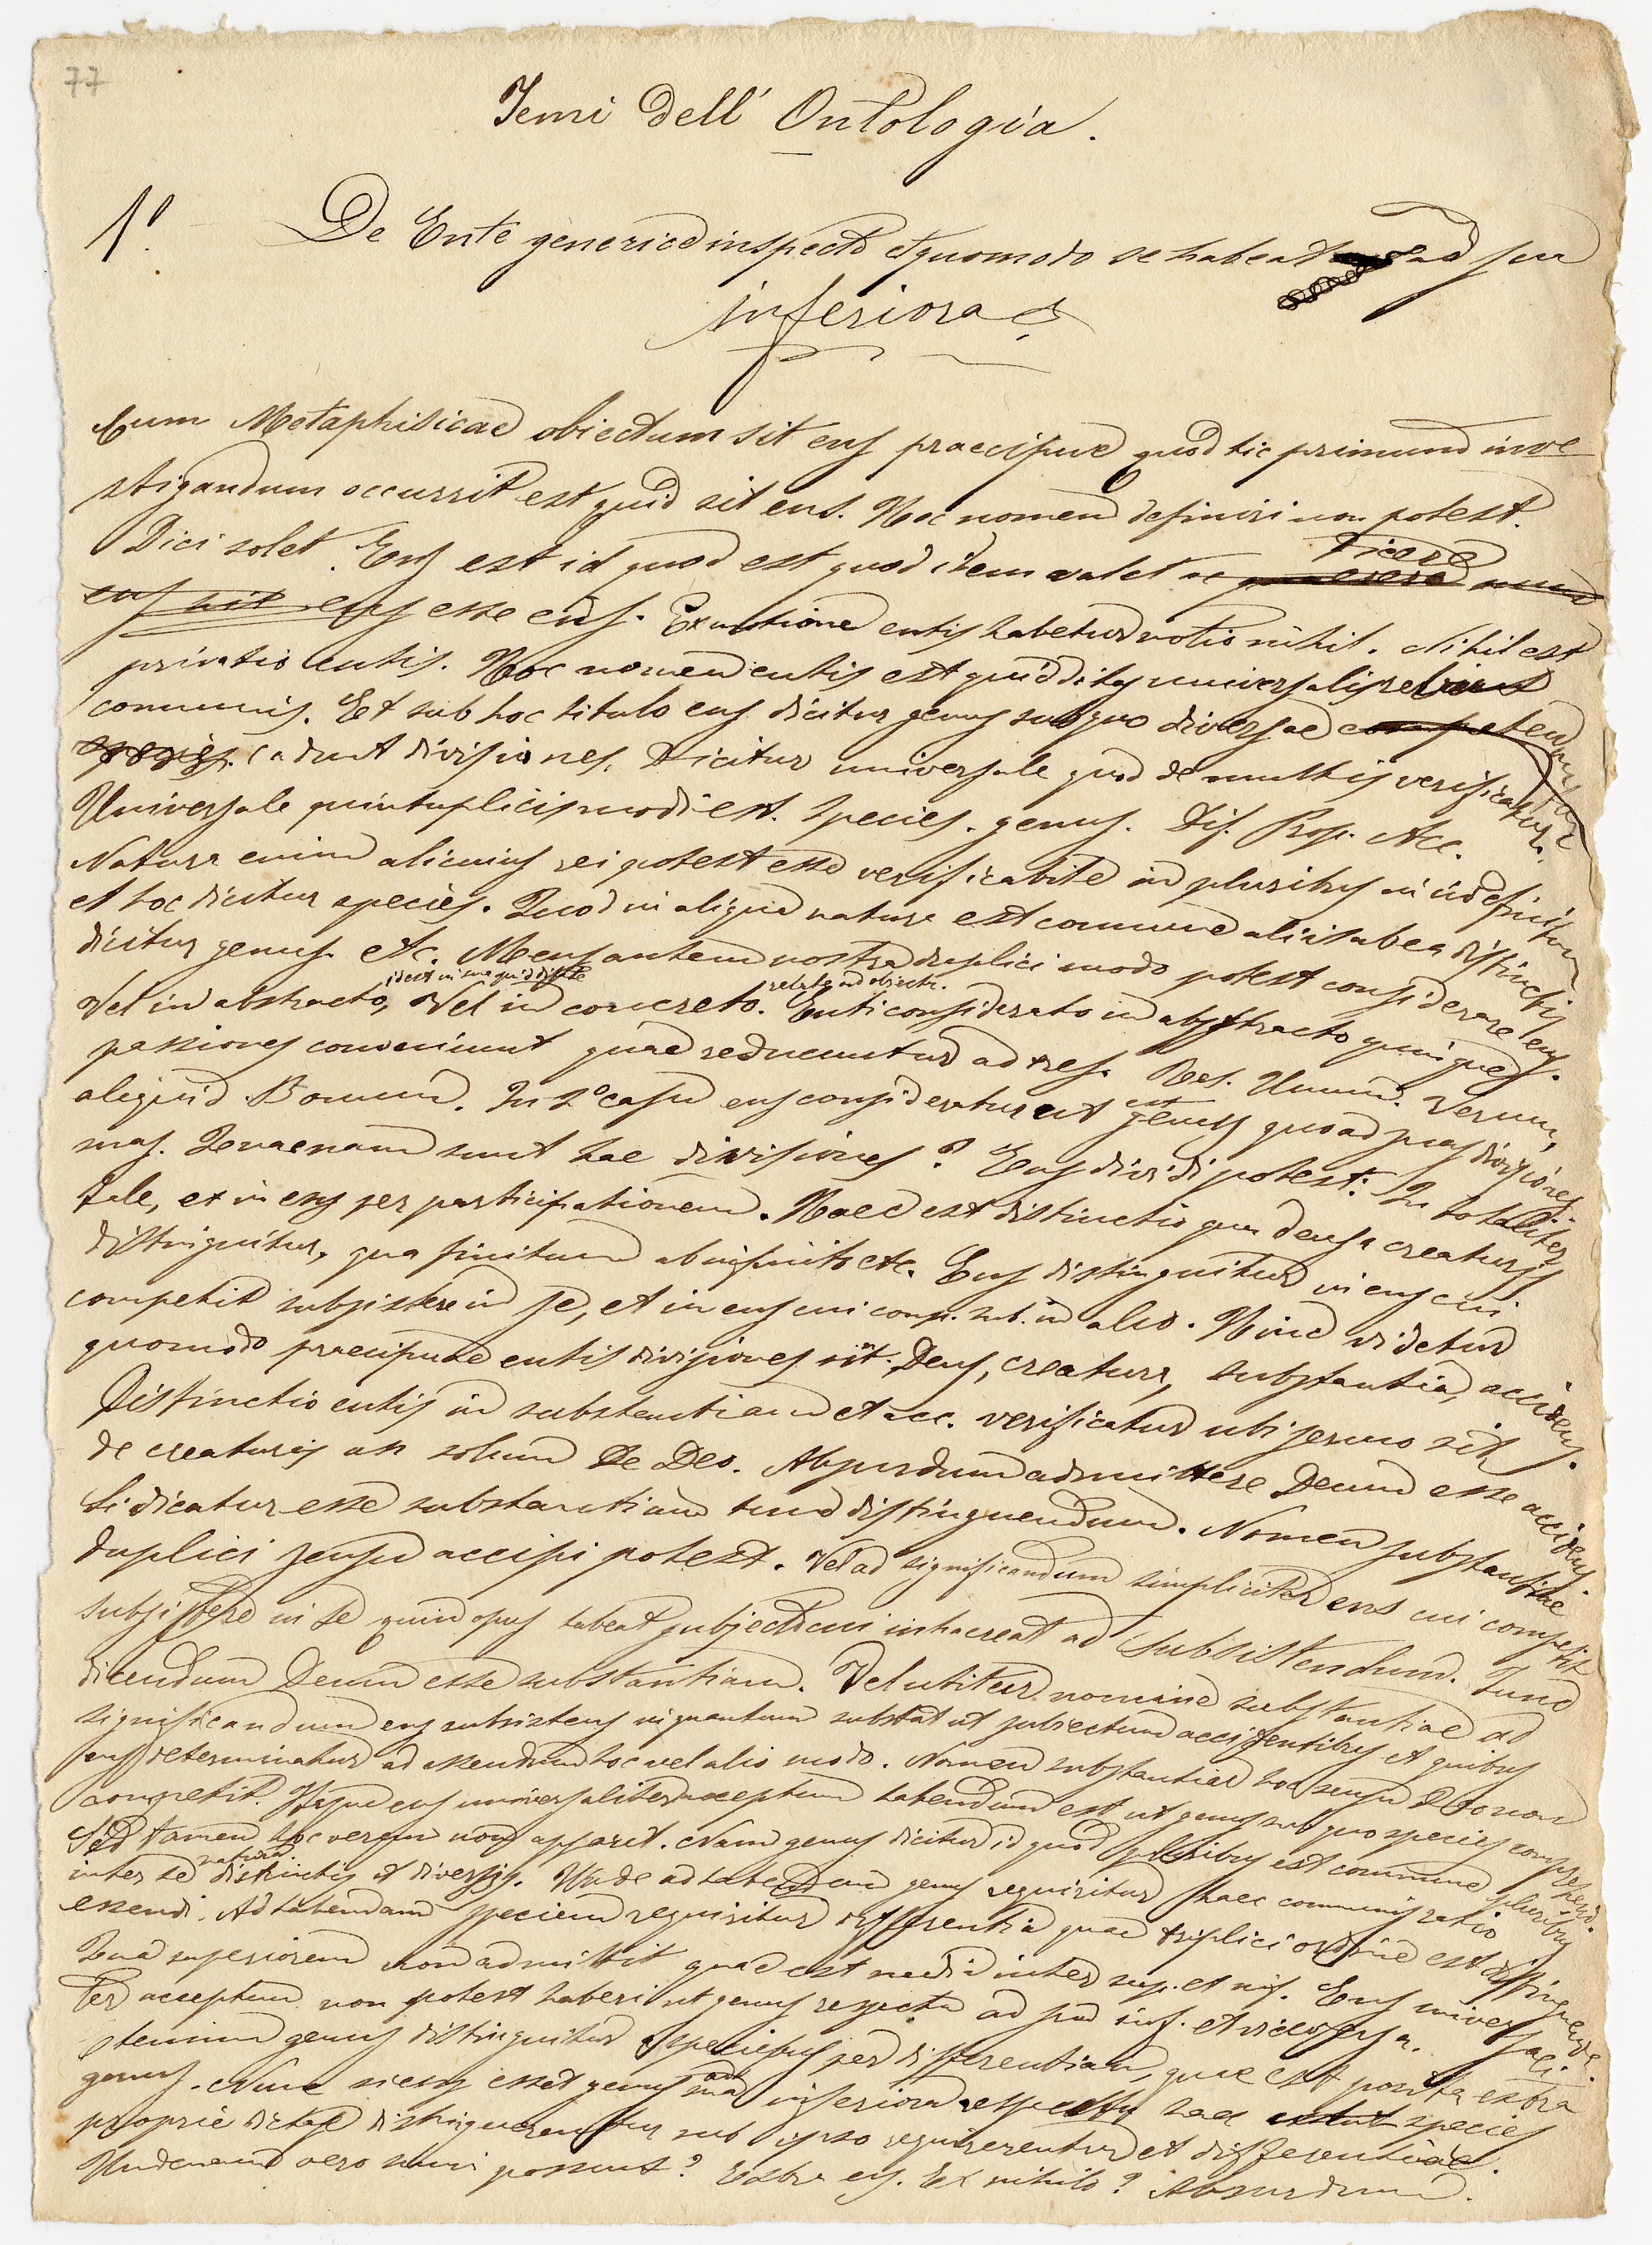 77
Temi dell' Ontologia.
1º. De Ente generice inspecto et quomodo se habeat ad sua
inferiora
Cum Metaphisicae obiectum sit ens praecipue quod hic primum inve
stigandum occurrit est quid sit ens. Hoc nomen definiri non potest.
Dici solet. Ens est id quod est quod idem valet ac dicere
ens esse ens. Ex notione entis habetur notio nihil. Nihil est
privatio entis. Hoc nomen entis est quidditas universalis
communis. Et sub hoc titulo ens dicitur genus sub quo diversae
cadunt divisiones. Dicitur universale quod de multis verificatur.
Universale quintuplicis modi est. Species. genus. Dif. Prop. Acc.
Natura enim alicuius rei potest esse verificabile in pluribus in indefinitum
et hoc dicitur species. Quod in aliqua natura est commune aliis ab ea distinctis
dicitur genus. etc. Mens autem nostra duplici modo potest considerare ens.
Vel in abstracto, idest in sua quidditate Vel in concreto. relate ad objecta. Enti considerato in abstracto quinque
passiones conveniunt quae reducuntur ad tres. Res. Unum. Verum,
aliquid Bonum. In 2º casu ens consideratur ut est genus quoad suas divisiones
mas. Quaenam sunt hae divisiones? Ens dividi potest: In totaliter
tale, et in ens per participationem. Haec est distinctio qua deus a creaturis
distinguitur, qua finitum ab infinito etc. Ens distinguitur in ens cui
competit subsistere in se, et in ens cui comp. sub. in alio. Hinc videtur
quomodo praecipuae entis divisiones sint. Deus, creatura, substantia, accidens.
Distinctio entis in substantiam et acc. verificatur ubi sermo sit
de creaturis an solum de Deo. Absurdum admittere Deum esse accidens.
Si dicatur esse substantiam tunc distinguendum. Nomen substantiae
duplici sensu accipi potest. Vel ad significandum simpliciter ens cui competit
subsistere in se quin opus habeat subjecto cui inhaereat ad subsistendum. Tunc
dicendum Deum esse substantiam. Vel utitur nomine substantiae ad
significandum ens subsistens in quantum substat ut subiectum accidentibus et quibus
ens determinatur ad essendum hoc vel alio modo. Nomen substantiae hoc sensu Deo non
competit. Usque ens universaliter acceptum habendum est ut genus sub quo species comprehend.
Sed tamen hoc verum non apparet. Nam genus dicitur id quod pluribus est commune pluribus
inter se natura distinctis et diversis. Unde ad habendum genus requiritur haec communis ratio
essendi. Ad habendam speciem requiritur differentia quae triplici ordine est distinguenda.
Qua superiorem non admittit quae est media inter sup. et inf. Ens universali
ter acceptum non potest haberi ut genus respectu ad sua inf. et viceversa.
etenim genus distinguitur a speciebus per differentiam, quae est posita extra
genus. Nunc si ens esset genus ad sua inferiora respectu hae species
proprie dictae distinguerentur sub ipso requirerentur et differentiae.
Undenam vero sumi possunt? Extra ens. Ex nihilo? Absurdum.